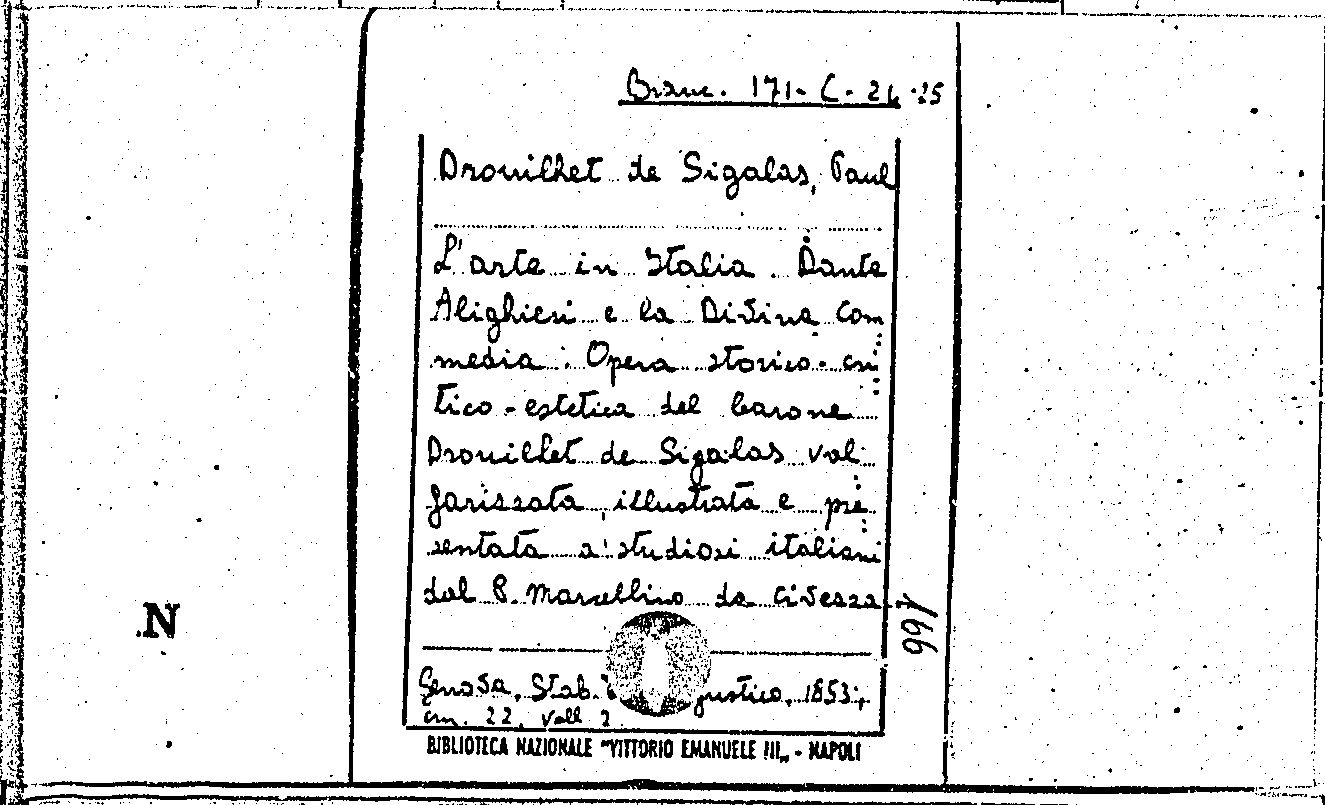 Branc. 171- C- 24-25
Drouilhet de Sigalas, Paul
L'arte in Italia. Dante
Alighieri e la Divina Com
media. Opera storico-cri
tico-estetica del barone
Drouilhet de Sigalas vol
garizzata, illustrata e pre
sentata a' studiosi italiani
dal P. Marcellino da Civezza
Genova, Stab. gustico, 1853,
cm. 22, voll 2
166
N
BIBLIOTECA NAZIONALE "VITTORIO EMANUELE III„ - NAPOLI